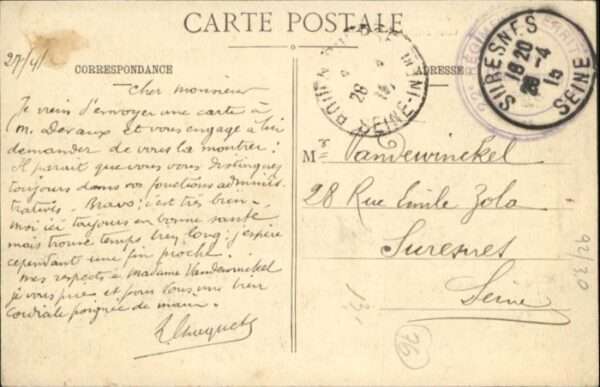 CARTE POSTALE
CORRESPONDANCE
ADRESSE
27/4/
Cher Monsieur
Je viens d'envoyer une carte à
M. Devaux et vous engage à lui
demander de vous la montrer.
Il parait que vous vous distinguez
toujours dans vos fonctions adminis-
tratives. Bravo! c'est très bien.
Moi ici toujours en bonne santé
mais trouve temps long; j'espère
cependant une fin proche.
Mes respects à Madame Vandewinckel
je vous prie et pour vous une bien
cordiale poignée de main.
Mr Vandewinckel
28 Rue Emile Zola
Suresnes
Seine
SURESNES
18 20
28 -4
15
SEINE
ROUEN
28
4
15
SEINE-INF
22e REGIMENT TERRIT
92/30
13
26